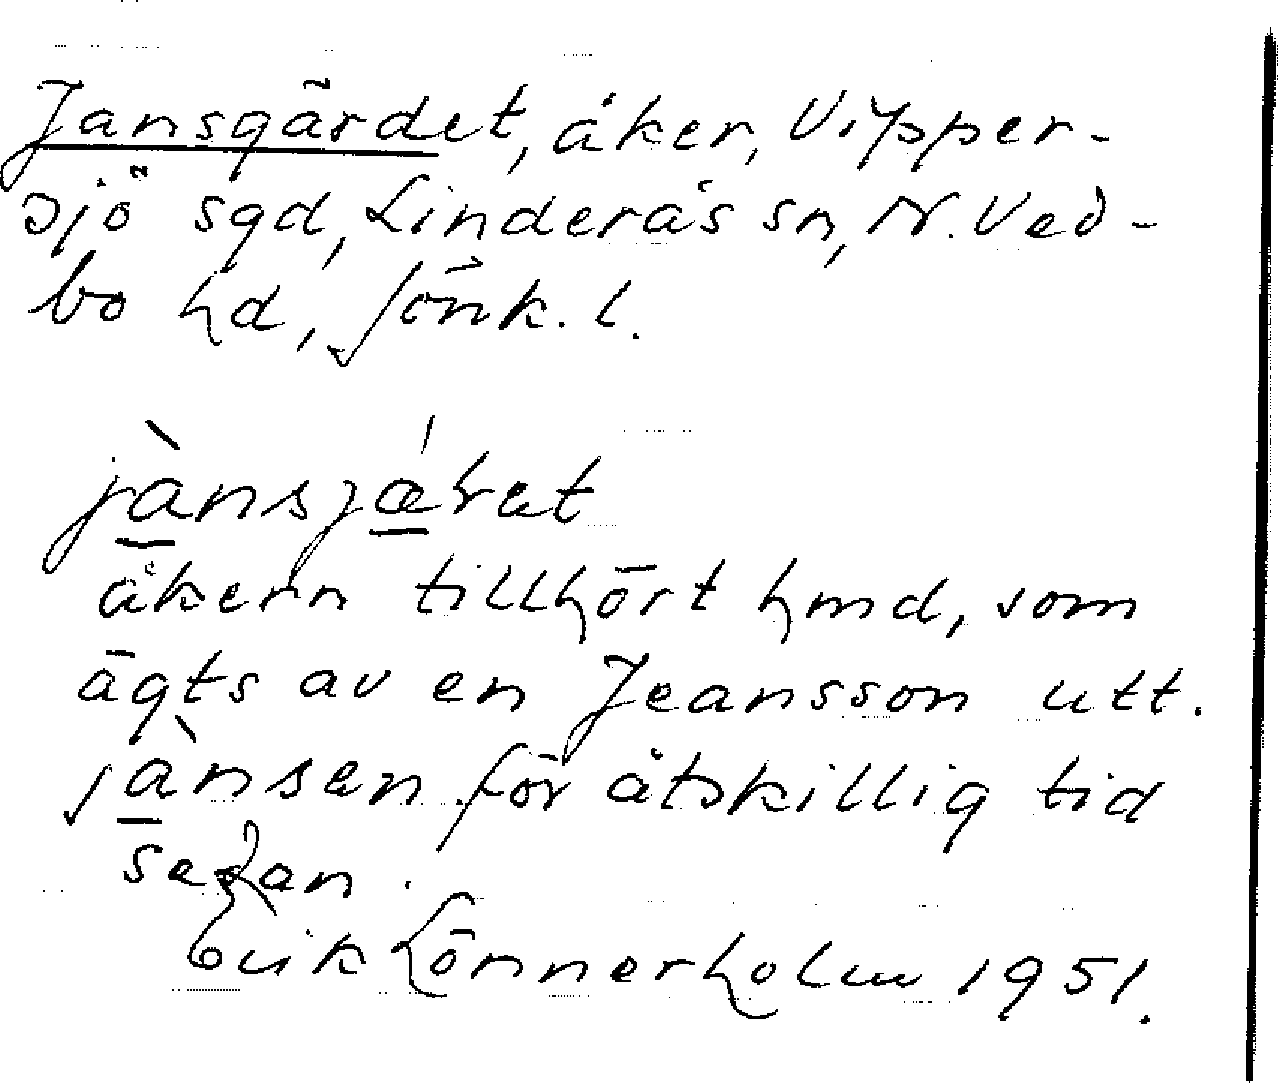 Jansgärdet, åker, Vipper-
sjö sgd, Linderås sn, N. Ved-
bo hd, Jönk. l.
jànsjǽret
åkern tillhört hmd, som
ägts av en Jeansson utt.
jànsen för åtskillig tid
sedan.
Erik Lönnerholm 1951.